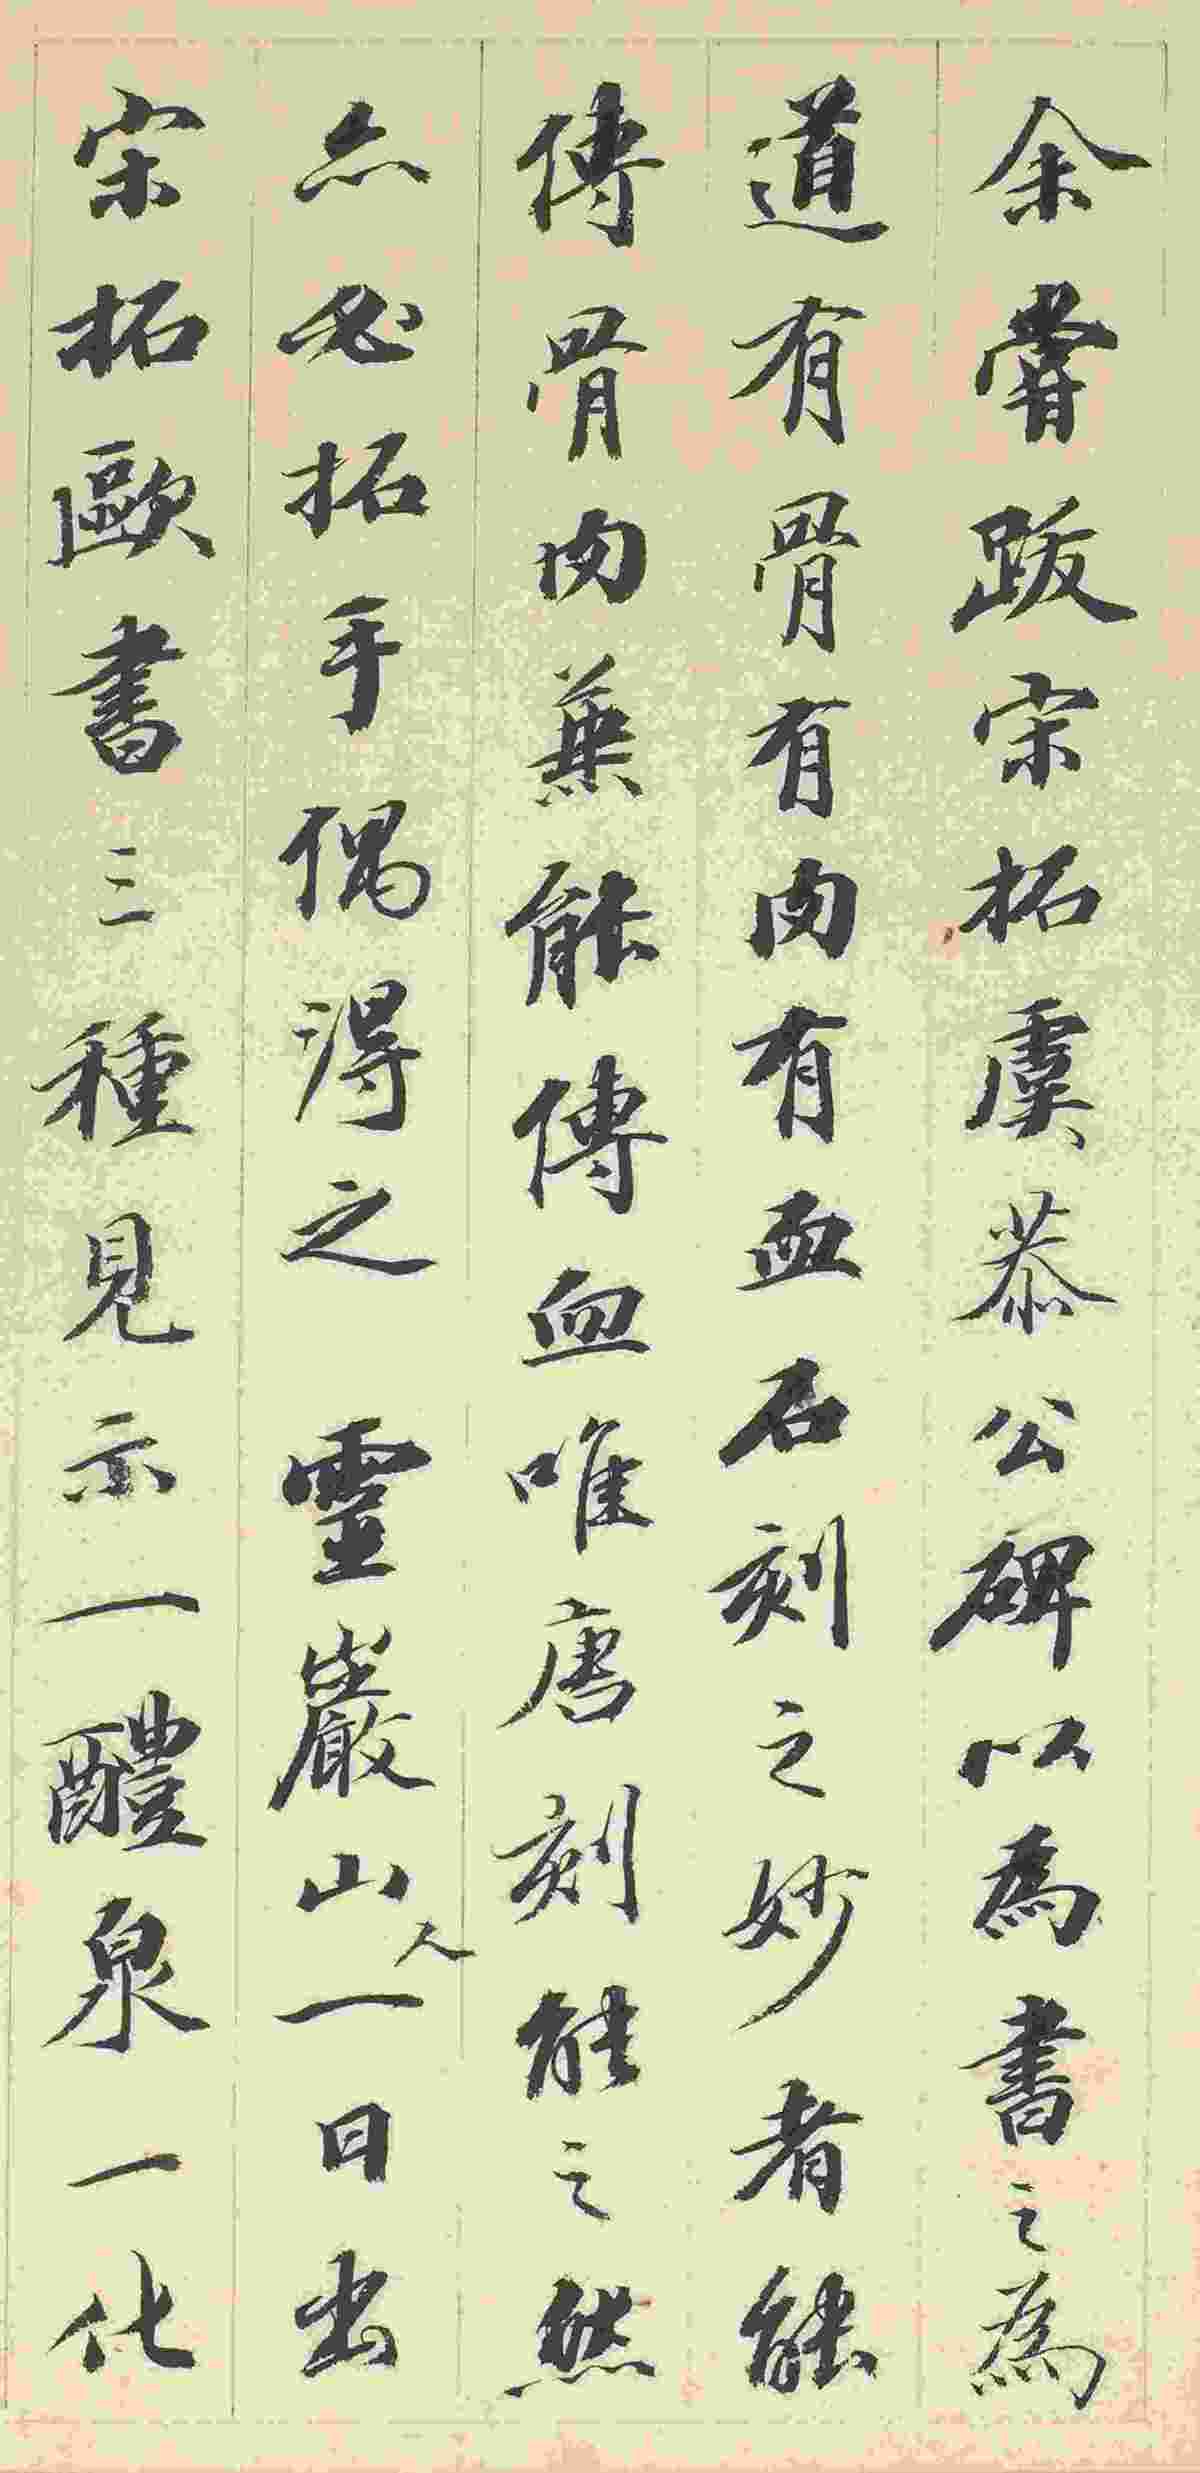 余嘗跋宋拓虞恭公碑以為書之為
道有骨有肉有血石刻之妙者能
傳骨肉蕪能傳血唯唐刻能之然
亦必拓手偶得之 靈巖山人一日出
宋拓歐書三種見示一醴泉一化